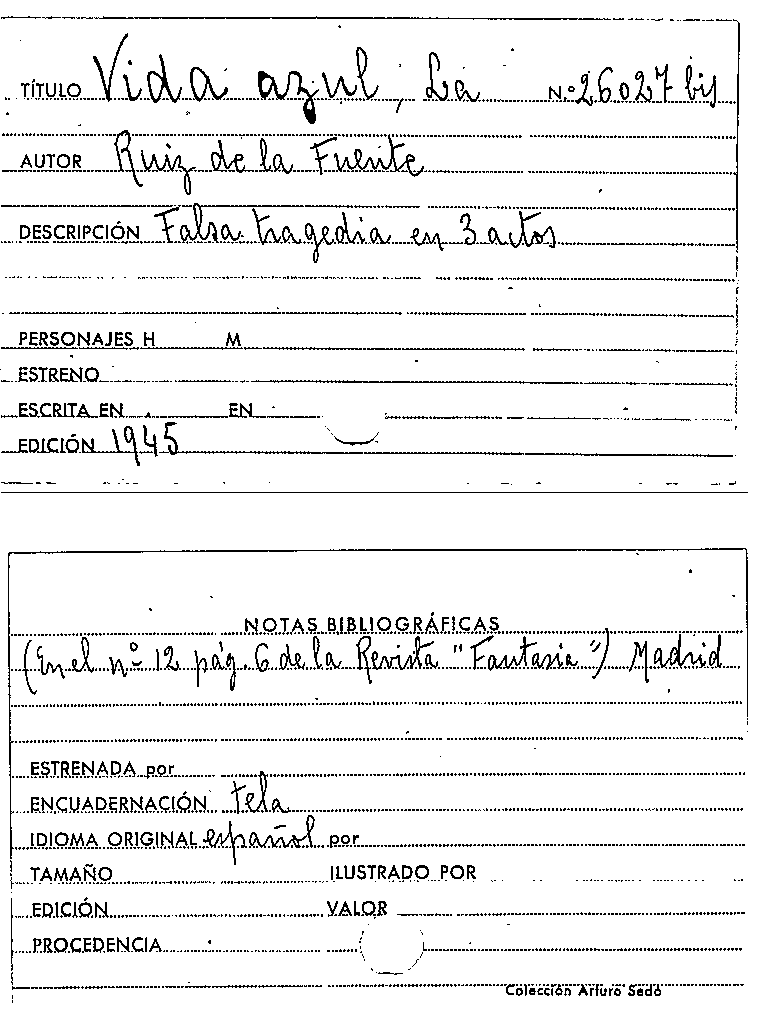 TÍTULO Vida azul, La N.º 26027 bis
AUTOR Ruiz de la Fuente
DESCRIPCIÓN Falsa tragedia en 3 actos
PERSONAJES H M
ESTRENO
ESCRITA EN EN
EDICIÓN 1945
NOTAS BIBLIOGRÁFICAS
(En el nº 12 pág. 6 de la Revista "Fantasia") Madrid
ESTRENADA por
ENCUADERNACIÓN tela
IDIOMA ORIGINAL español por
TAMAÑO ILUSTRADO POR
EDICIÓN VALOR
PROCEDENCIA
Colección Arturo Sedó